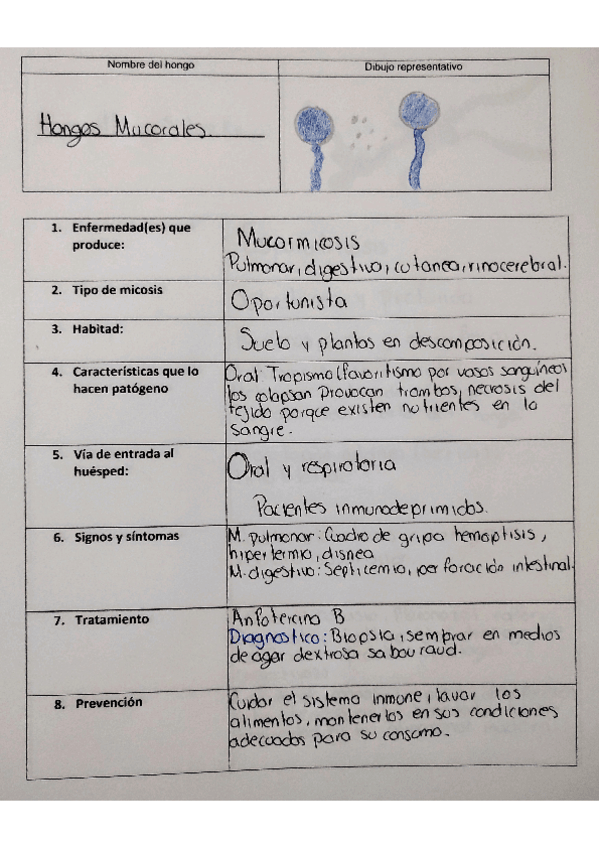 Nombre del hongo
Dibujo representativo
Hongos Mucorales.
1. Enfermedad(es) que
produce:
Mucormicosis
Pulmonar, digestivo, cutanea, rinocerebral.
2. Tipo de micosis
Oportunista
3. Habitad:
Suelo y plantas en descomposición.
4. Características que lo
hacen patógeno
Oral Tropismo (favoritismo por vasos sanguíneos
los colapsan Provocan trombos, necrosis del
tejido porque existen nutrientes en la
sangre.
5. Vía de entrada al
huésped:
Oral y respiratoria
Pacientes inmunodeprimidos.
6. Signos y síntomas
M. pulmonar: Cuadro de gripa hemoptisis,
hipertermia, disnea
M. digestivo: Septicemia, perforación intestinal.
7. Tratamiento
Anfotericina B
Diagnostico: Biopsia, sembrar en medios
de agar dextrosa sabouraud.
8. Prevención
Cuidar el sistema inmone, lavar los
alimentos, mantenerlos en sus condiciones
adecuadas para su consumo.